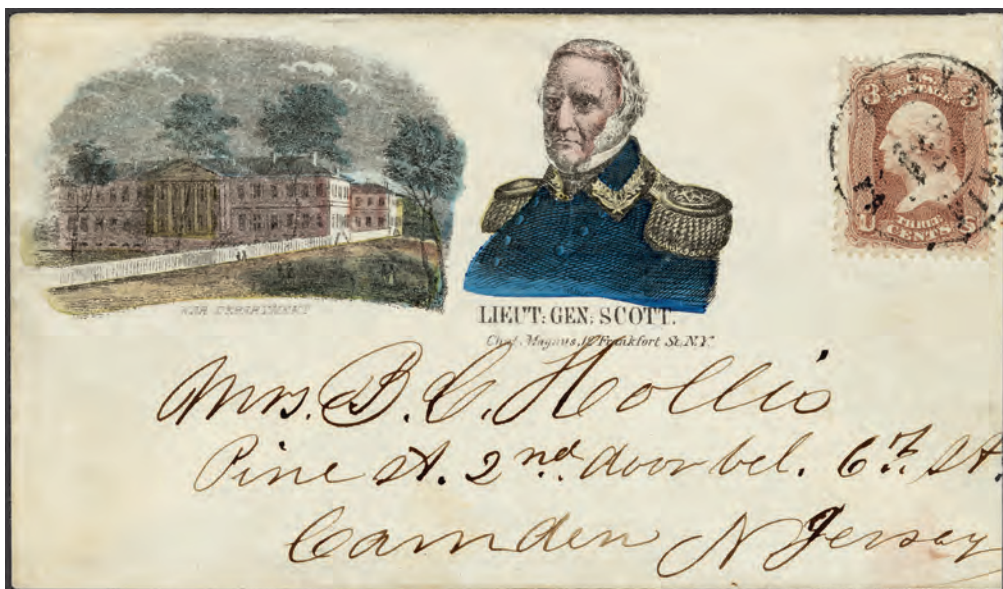 WAR DEPARTMENT
LIEUT: GEN: SCOTT.
Chas. Magnus, 12 Frankfort St. N.Y.
U.S.
POSTAGE
3 3
U S
THREE
CENTS
Mrs. B. C. Hollis
Pine st. 2nd. door bel. 6th. St.
Camden N Jersey